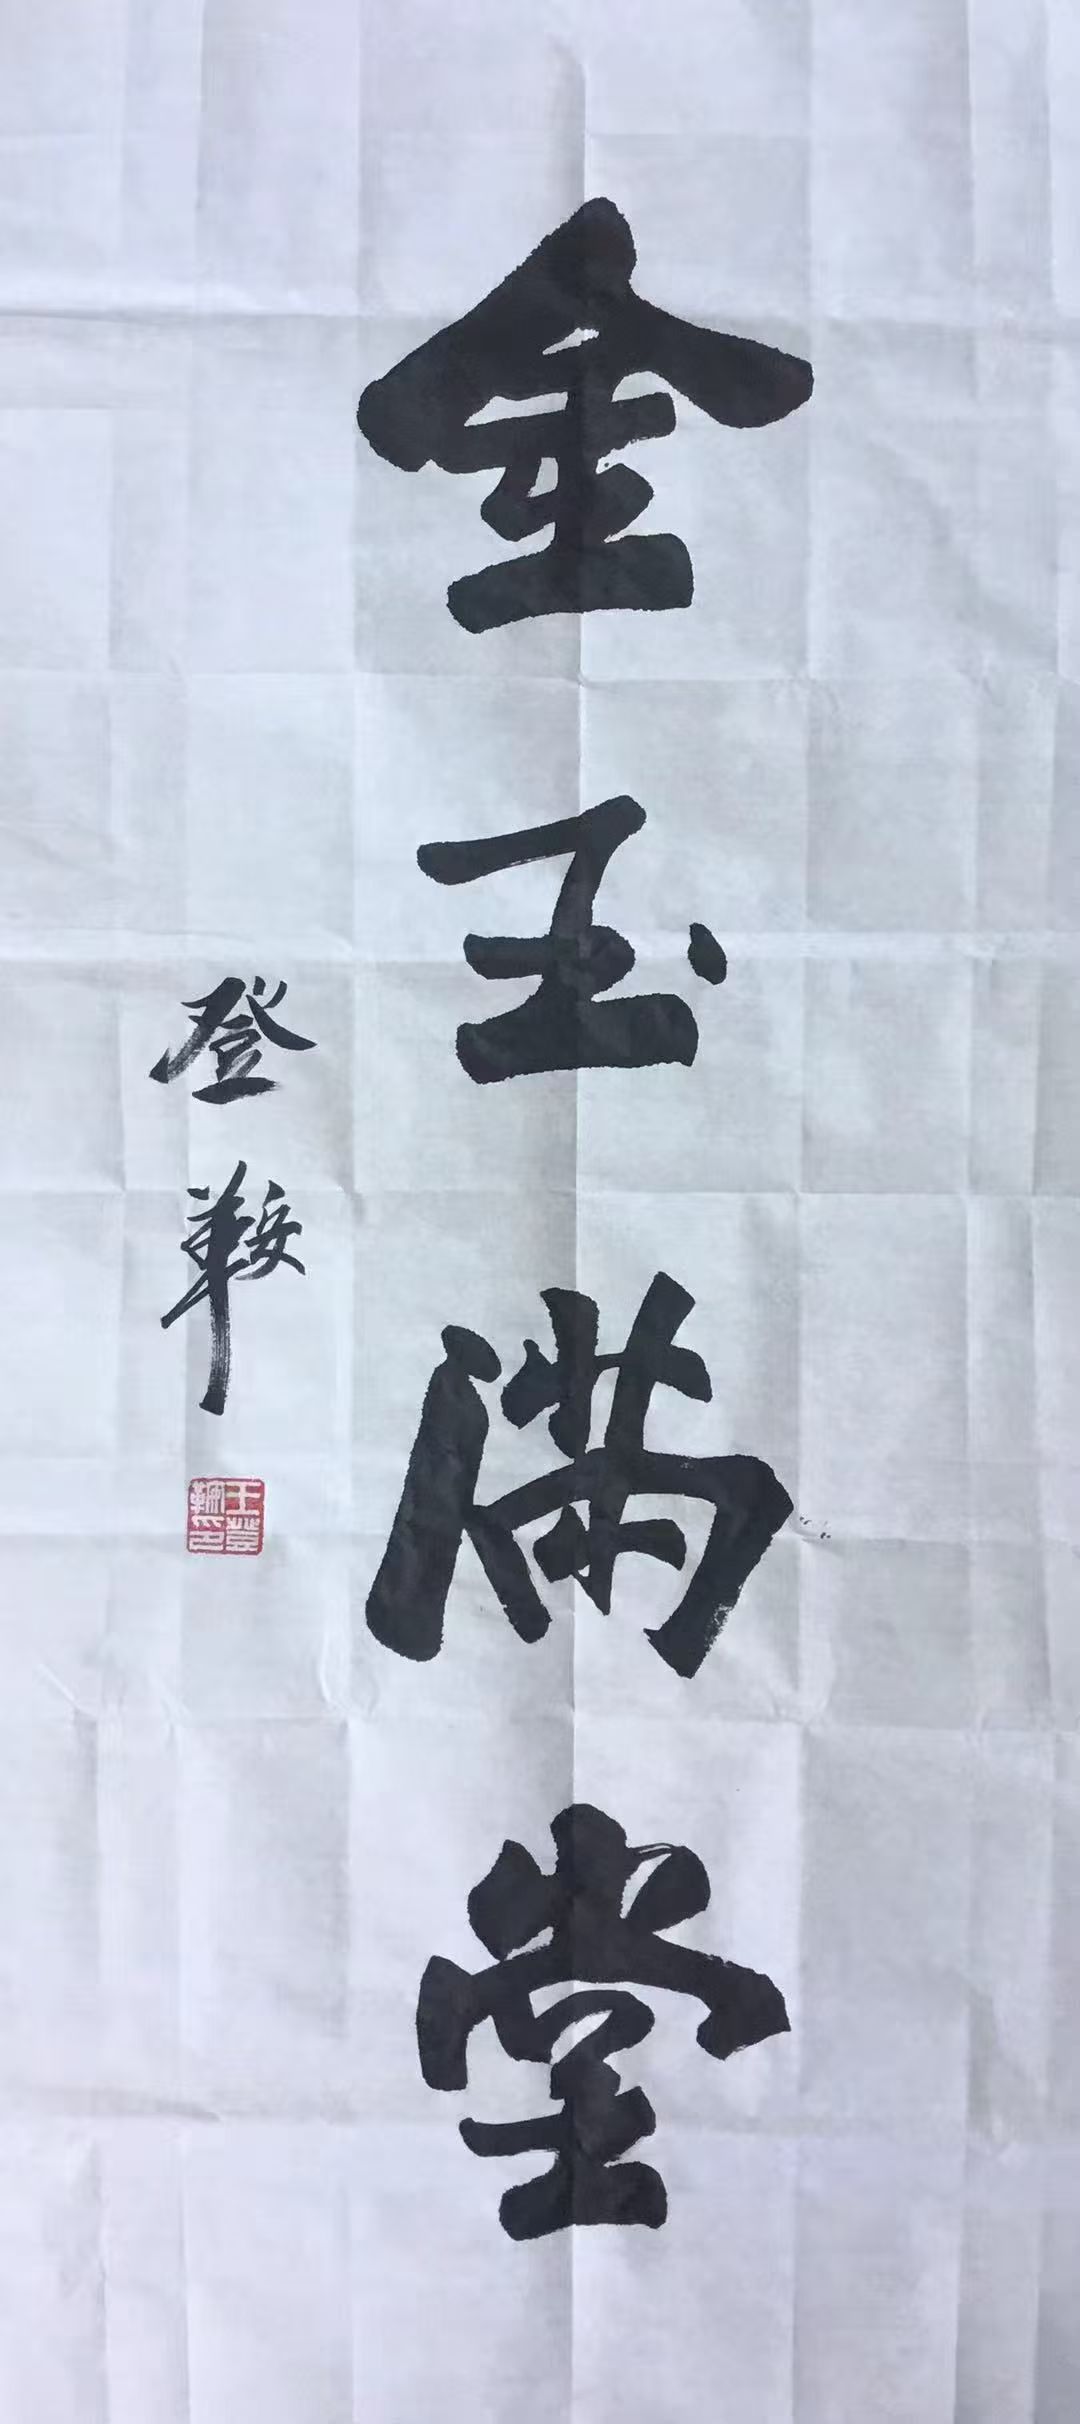 金玉满堂
登鞍
王登
鞍印